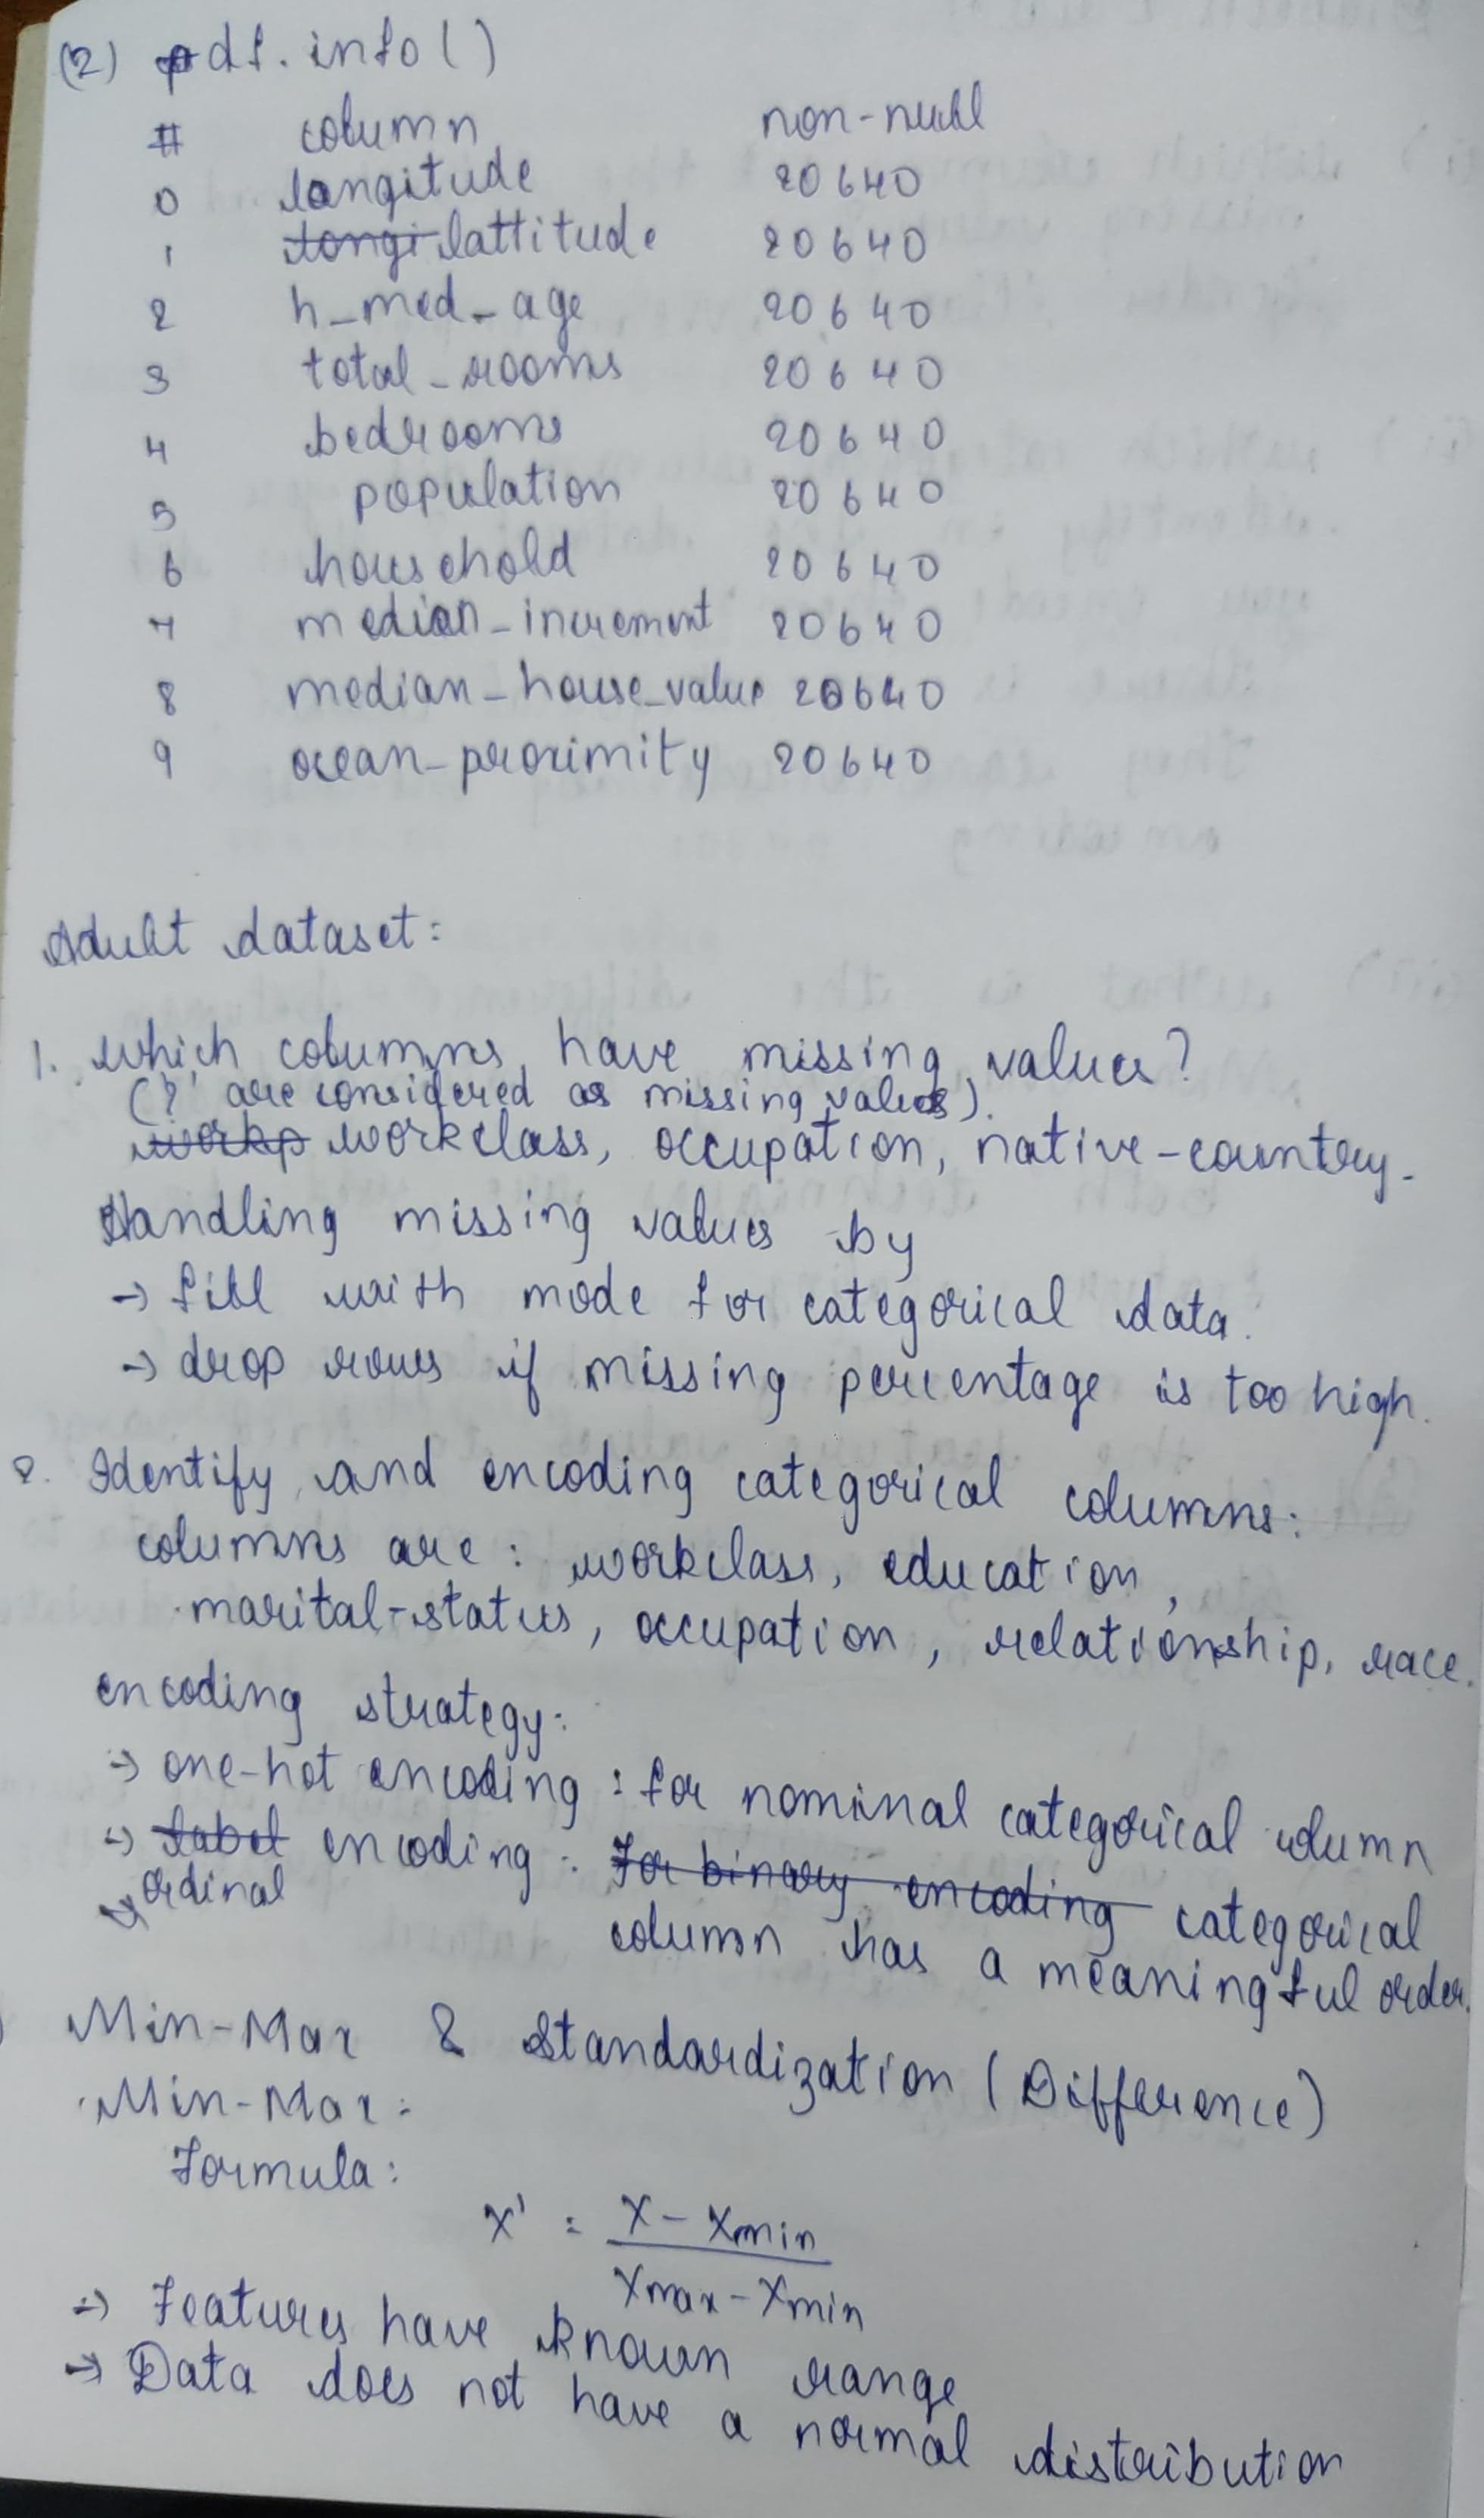 (2) df.info()
# column non-null
0 longitude 20640
1 longi lattitude 20640
2 h_med_age 20640
3 total_rooms 20640
4 bedrooms 20640
5 population 20640
6 household 20640
7 median_increment 20640
8 median_house_value 20640
9 ocean_proximity 20640
Adult dataset:
1. Which columns have missing values?
('?' are considered as missing values).
workp workclass, occupation, native-country.
Handling missing values by
→ fill with mode for categorical data.
→ drop rows if missing percentage is too high.
2. Identify and encoding categorical columns:
columns are: workclass, education,
marital-status, occupation, relationship, race.
encoding strategy:
→ one-hot encoding: for nominal categorical column
→ label encoding: For binary encoding categorical
ordinal column has a meaningful order.
Min-Max & Standardization (Difference)
Min-Max:
Formula:
X' = X - Xmin / Xmax - Xmin
→ Features have known range
→ Data does not have a normal distribution